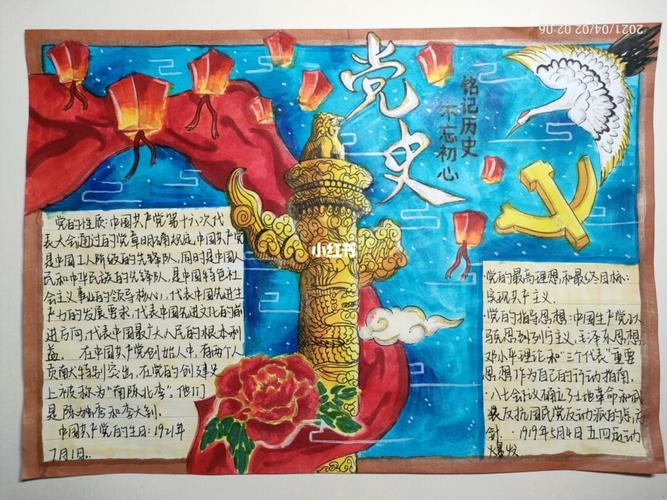 2021/04/02 02:06
党史
铭记历史
不忘初心
小红书
党的性质:中国共产党第十六次代
表大会通过的党章明确规定,中国共产党
是中国工人阶级的先锋队,同时是中国人
民和中华民族的先锋队,是中国特色社
会主义事业的领导核心,代表中国先进生
产力的发展要求,代表中国先进文化的前
进方向,代表中国最广大人民的根本利
益。 在中国共产党创始人中,有两个人
贡献特别突出,在党的创建史
上被称为“南陈北李”,他们
是陈独秀和李大钊。
中国共产党的生日:1921年
7月1日。
党的最高理想和最终目标:
实现共产主义。
党的指导思想:中国共产党以马
列思想列宁主义、毛泽东思想,
邓小平理论和“三个代表”重要
思想作为自己的行动指南。
·八七会议确定了土地革命和武
装反抗国民党反动派的总方
针。·1919年5月4日五四运动
爆发